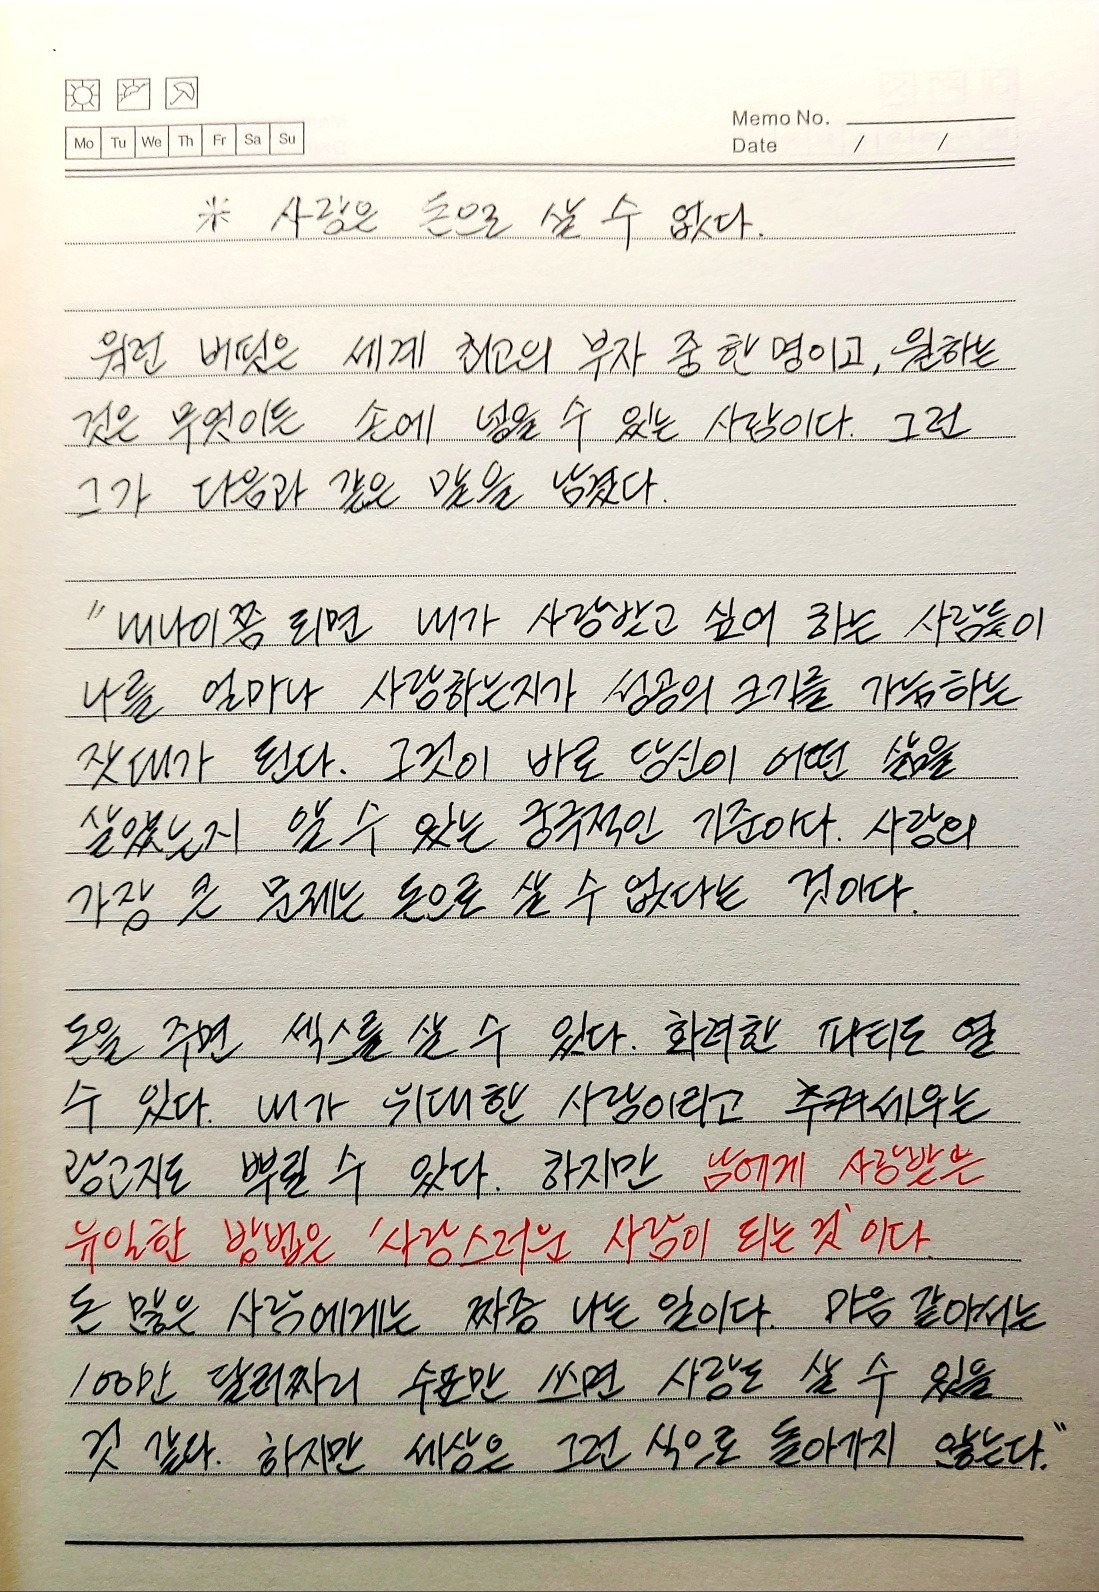 Mo Tu We Th Fr Sa Su
Memo No.
Date / /
※ 사랑은 돈으로 살 수 없다.
워런 버핏은 세계 최고의 부자 중 한 명이고, 원하는
것은 무엇이든 손에 넣을 수 있는 사람이다. 그런
그가 다음과 같은 말을 남겼다.
"내나이쯤 되면 내가 사랑받고 싶어 하는 사람들이
나를 얼마나 사랑하는지가 성공의 크기를 가늠하는
잣대가 된다. 그것이 바로 당신이 어떤 삶을
살았는지 알 수 있는 궁극적인 기준이다. 사랑의
가장 큰 문제는 돈으로 살 수 없다는 것이다.
돈을 주면 섹스를 살 수 있다. 화려한 파티도 열
수 있다. 내가 위대한 사람이라고 추켜세우는
광고지도 뿌릴 수 있다. 하지만 남에게 사랑받는
유일한 방법은 '사랑스러운 사람이 되는 것'이다.
돈 많은 사람에게는 짜증 나는 일이다. 마음 같아서는
100만 달러짜리 수표만 쓰면 사랑도 살 수 있을
것 같다. 하지만 세상은 그런 식으로 돌아가지 않는다."